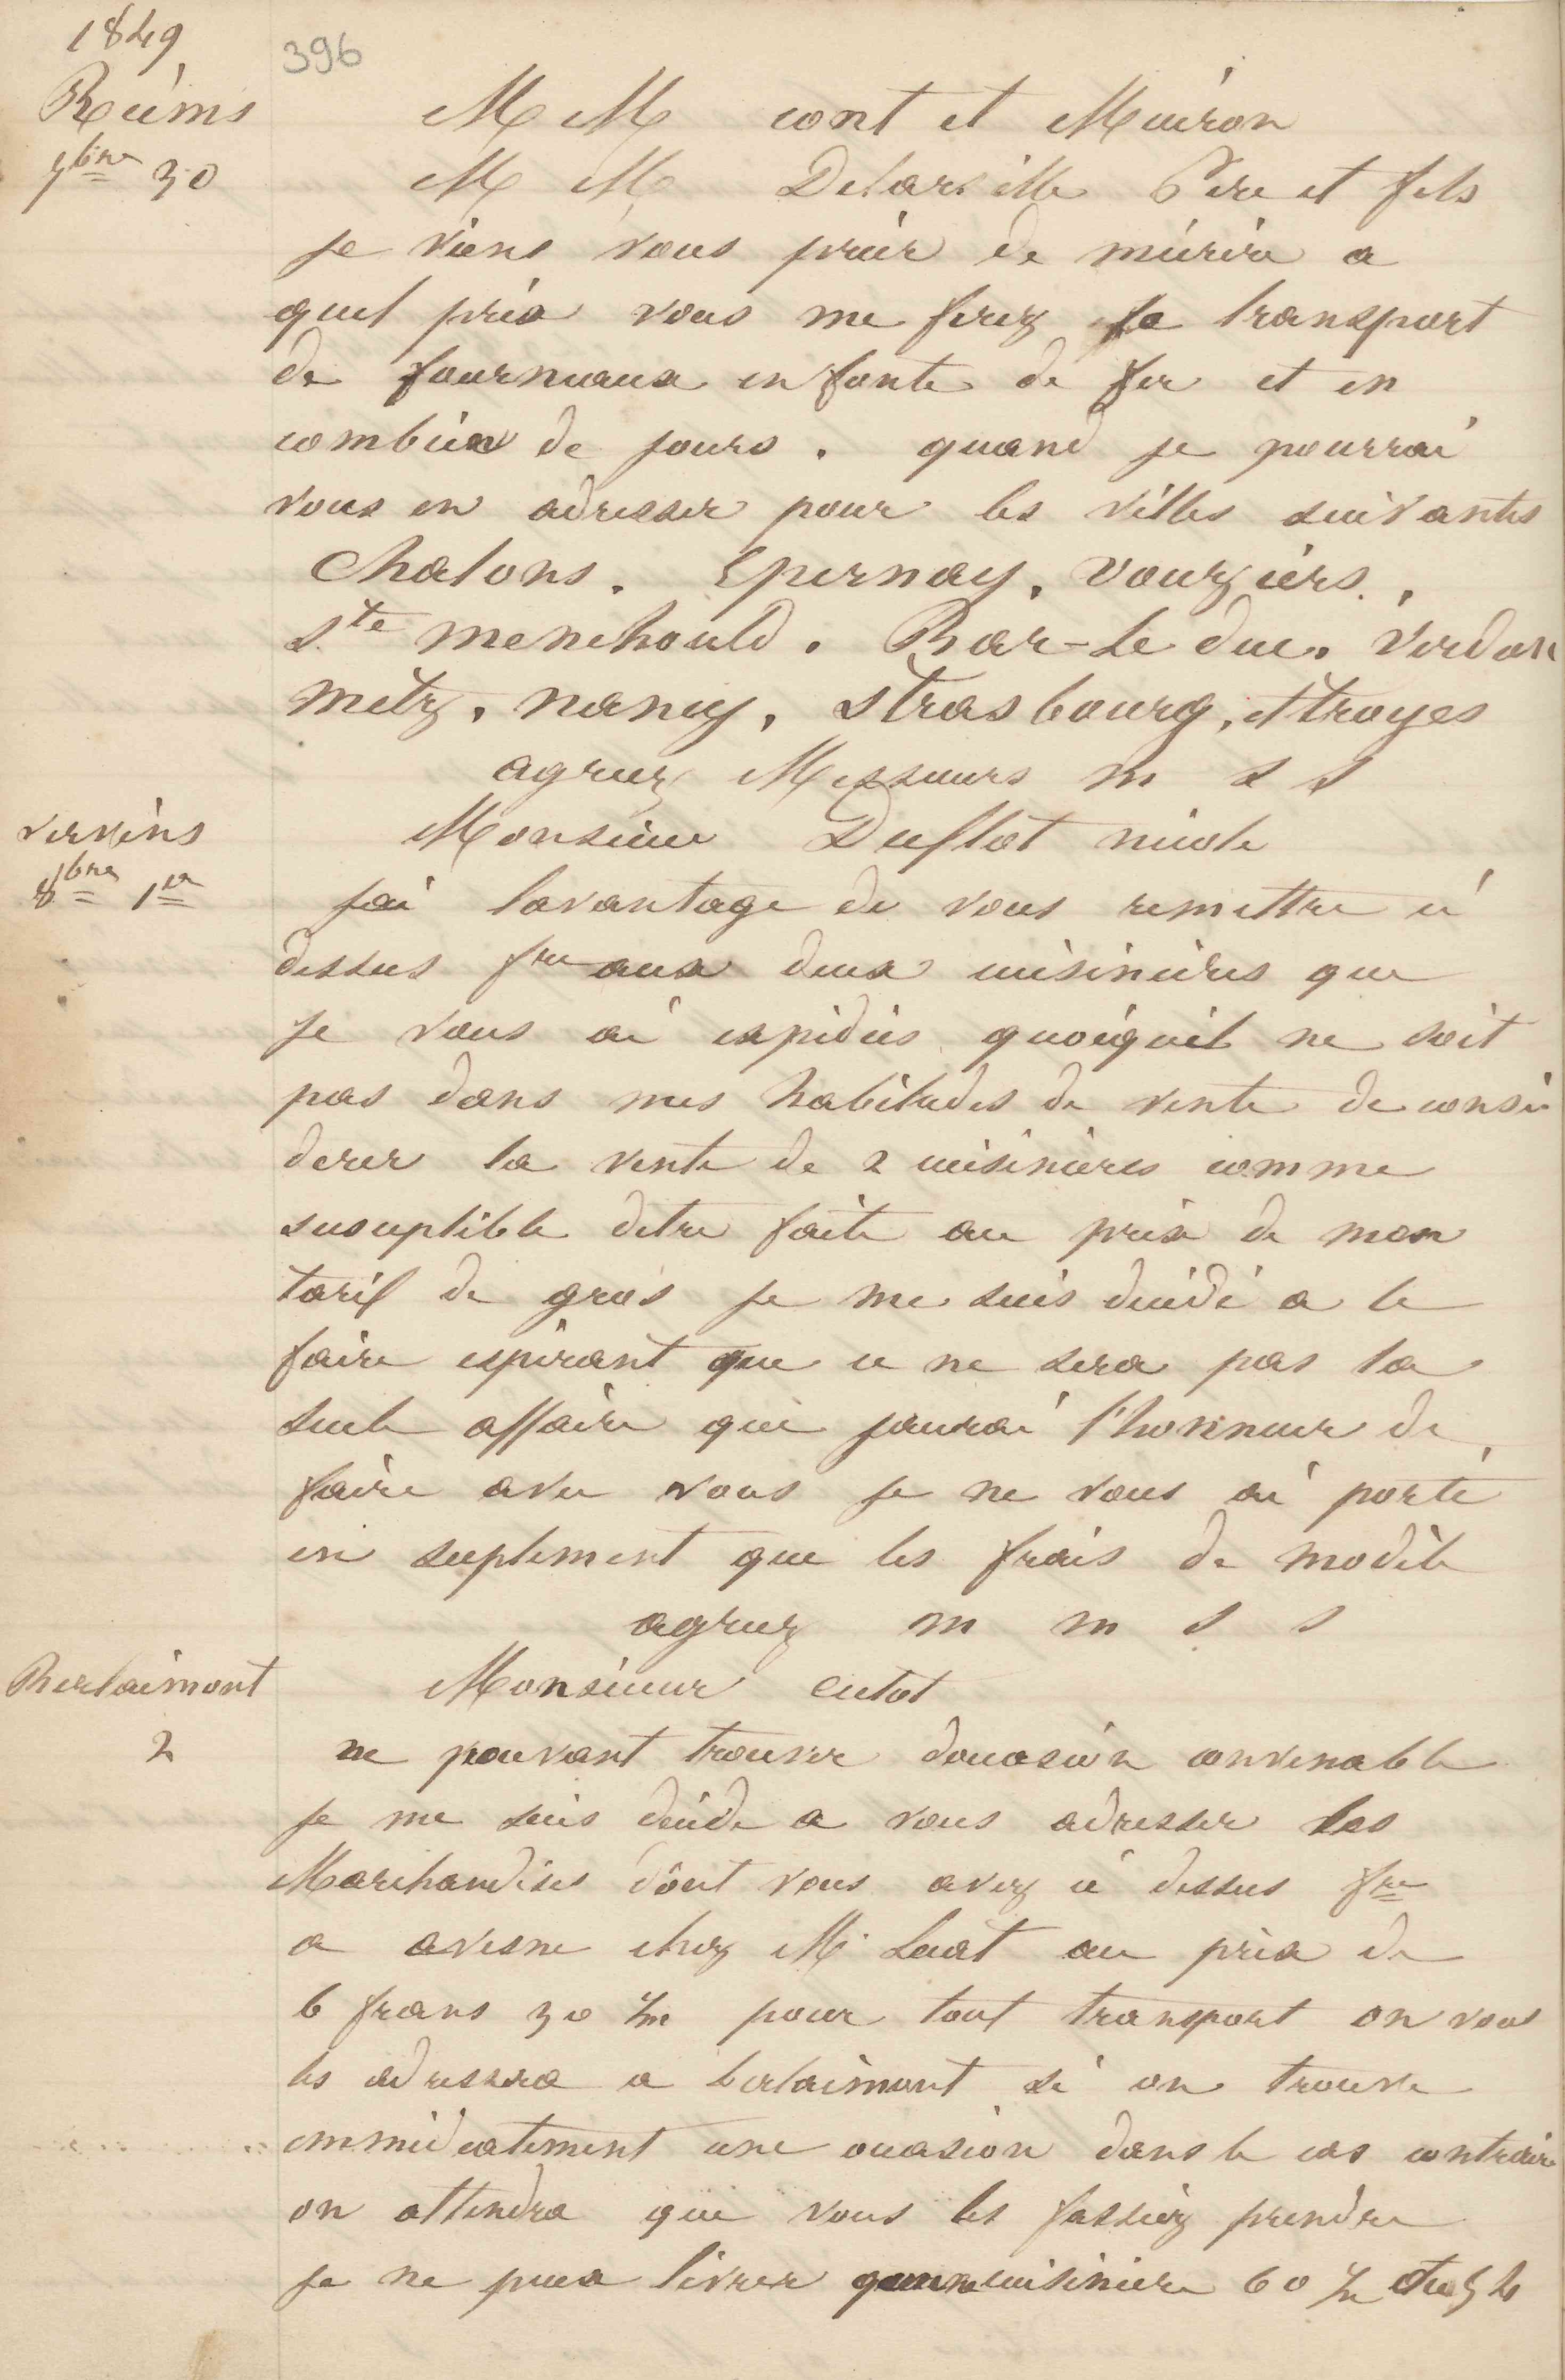 1849
396
Reims
7bre 30
M M cont et Muiron
M M Delarsille Père et fils
je viens vous prier de mécrire a
quel prix vous me ferez le transport
de fourneaux en fonte de fer et en
combien de jours. quand je pourrai
vous en adresser pour les villes suivantes
Chalons. Epernay. vouziérs.,
Ste menehould. Bar-le duc. Verdun
metz, nancy, strasbourg, et troyes
agreez Messieurs m s s
vervins
8bre 1er
Monsieur Duflot nicole
jai lavantage de vous remettre ci
dessus fre aux deux cuisinières que
je vous ai expédiés quoiquil ne soit
pas dans mes habitudes de vente de consi
derer la vente de 2 cuisinières comme
suseptible detre faite au prix de mon
tarif de gros je me suis décidé a le
faire espérant que ce ne sera pas la
seule affaire que jaurai l'honneur de
faire avec vous je ne vous ai porté
en suplement que les frais de modèle
agreez m m s s
Berlaimont
2
Monsieur cutot
ne pouvant trouver doccasion convenable
je me suis décide a vous adresser les
Marchandises dont vous avez ci dessus fre
a avesne chez M. Luat au prix de
6 frans 30 %m pour tout transport on vous
les adressera a berlaimont si on trouve
emmédiatement une occasion dans le cas contraire
on attendra que vous les fassiez prendre
je ne peux livrer quune cuisiniere 60 %m